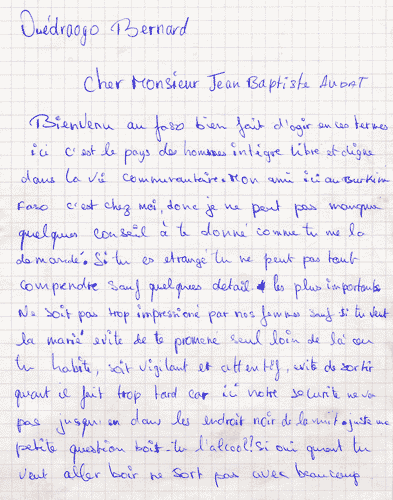 Ouédraogo Bernard
Cher Monsieur Jean Baptiste AUDAT
Bienvenu au faso bien fait d'agir en ces termes
ici c'est le pays des hommes intègre libre et digne
dans la vie communautaire. Mon ami ici au Burkina
Faso c'est chez moi, donc je ne peut pas manqué
quelques conseil à te donné comme tu me la
demandé. Si tu es etrangé tu ne peut pas tout
comprendre sauf quelques detail les plus importants
Ne soit pas trop impressioné par nos femmes sauf si tu veut
la marié evite de te promené seul loin de là ou
tu habite, soit vigilant et attentif, evite de sortir
quant il fait trop tard car ici notre securité ne va
pas jusqu'en dans les endroit noir de la nuit. juste une
petite question bois-tu l'alcool! Si oui quant tu
veut aller boir ne sort pas avec beaucoup